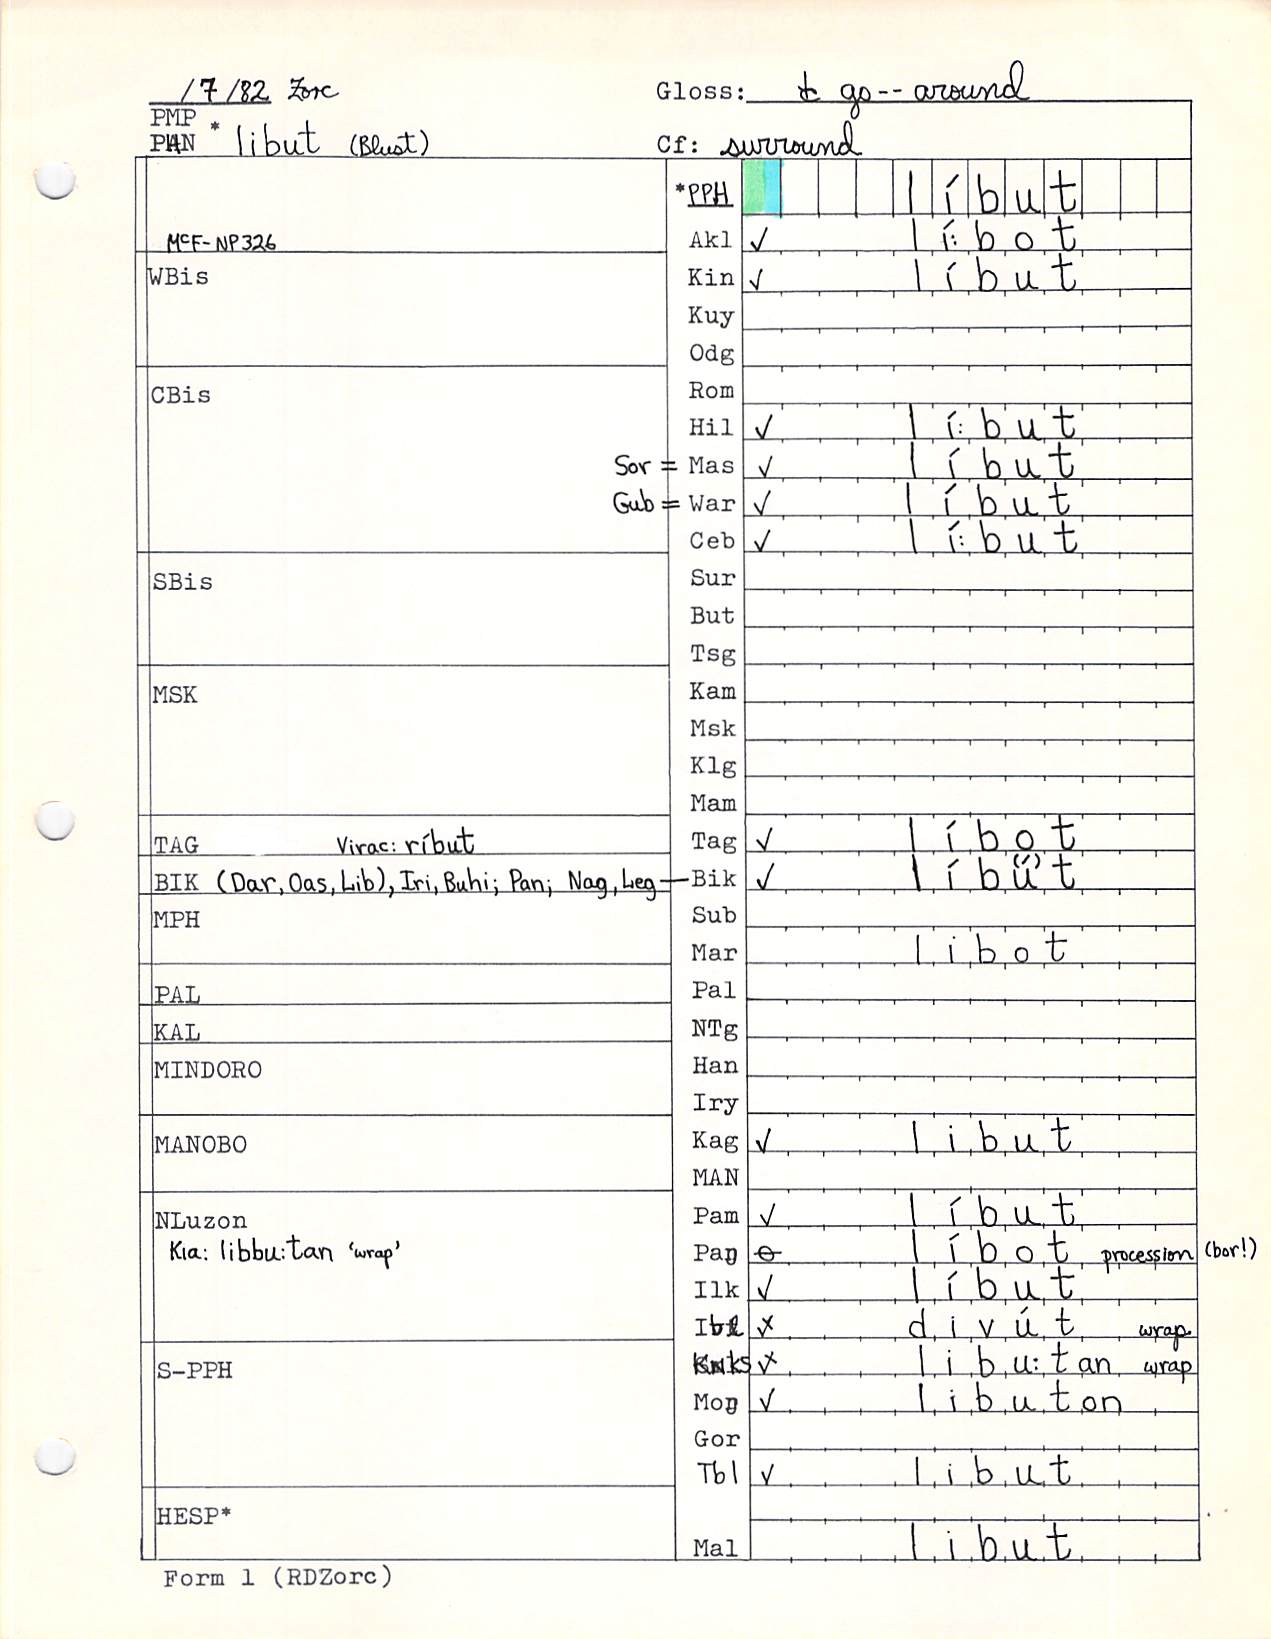 /7/82 Zorc Gloss: to go -- around
PMP
PAN * libut (Blust) Cf: surround
*PPH líbut
McF-NP326 Akl ✓ lí:bot
WBis Kin ✓ líbut
Kuy
Odg
CBis Rom
Hil ✓ lí:but
Sor = Mas ✓ líbut
Gub = War ✓ líbut
Ceb ✓ lí:but
SBis Sur
But
Tsg
MSK Kam
Msk
Klg
Mam
TAG Virac: ríbut Tag ✓ líbot
BIK (Dar, Oas, Lib), Iri, Buhi; Pan; Nag, Leg — Bik ✓ líbu(´)t
MPH Sub
Mar libot
PAL Pal
KAL NTg
MINDORO Han
Iry
MANOBO Kag ✓ libut
MAN
NLuzon Pam ✓ líbut
Kia: libbu:tan 'wrap' Paŋ líbot procession (bor!)
Ilk ✓ líbut
divút wrap
S-PPH Knks libu:tan wrap
Moŋ ✓ libuton
Gor
Tbl ✓ libut
HESP*
Mal libut
Form 1 (RDZorc)